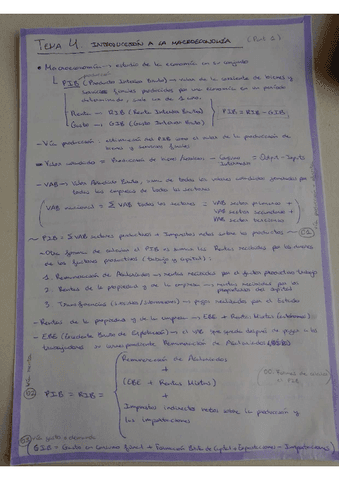 TEMA 4. INTRODUCCIÓN A LA MACROECONOMÍA
• Macroeconomía → estudio de la economía en su conjunto
PIB (Producto Interior Bruto) → valor de la corriente de bienes y
servicios finales producidos por una economía en un periodo
determinado,
Renta → RIB (Renta Interior Bruta)
Gasto → GIB (Gasto Interior Bruto)
PIB = RIB = GIB
- Vía producción: estimación del PIB como el valor de la producción de
bienes y servicios finales
Valor añadido = Producción de bienes/servicios - Consumos Intermedios = Output - Inputs
- VAB → Valor Añadido Bruto, suma de todos los valores añadidos generados por
todas las empresas de todos los sectores
VAB nacional = Σ VAB todos los sectores = VAB sector primario +
VAB sector secundario +
VAB sector terciario
~ PIB = Σ VAB sectores productivos + Impuestos netos sobre los productos ~ 01
- Otra forma de estimar el PIB es sumar las Rentas recibidas por los dueños
de los factores productivos (trabajo y capital):
1. Remuneración de Asalariados → rentas recibidas por el factor productivo trabajo
2. Rentas de la propiedad y de la empresa → rentas recibidas por los
propietarios del capital
3. Transferencias → pagos realizados por el Estado
- Rentas de la propiedad y de la empresa → EBE + Rentas Mixtas
- EBE (Excedente Bruto de Explotación) → el VAB que queda después de pagar a los
trabajadores su correspondiente Remuneración de Asalariados
02 PIB = RIB =
Remuneración de Asalariados
+
(EBE + Rentas Mixtas)
+
Impuestos indirectos netos sobre la producción y
las importaciones
03 Vía gasto o demanda
GIB = Gasto en consumo final + Formación Bruta de Capital + Exportaciones - Importaciones